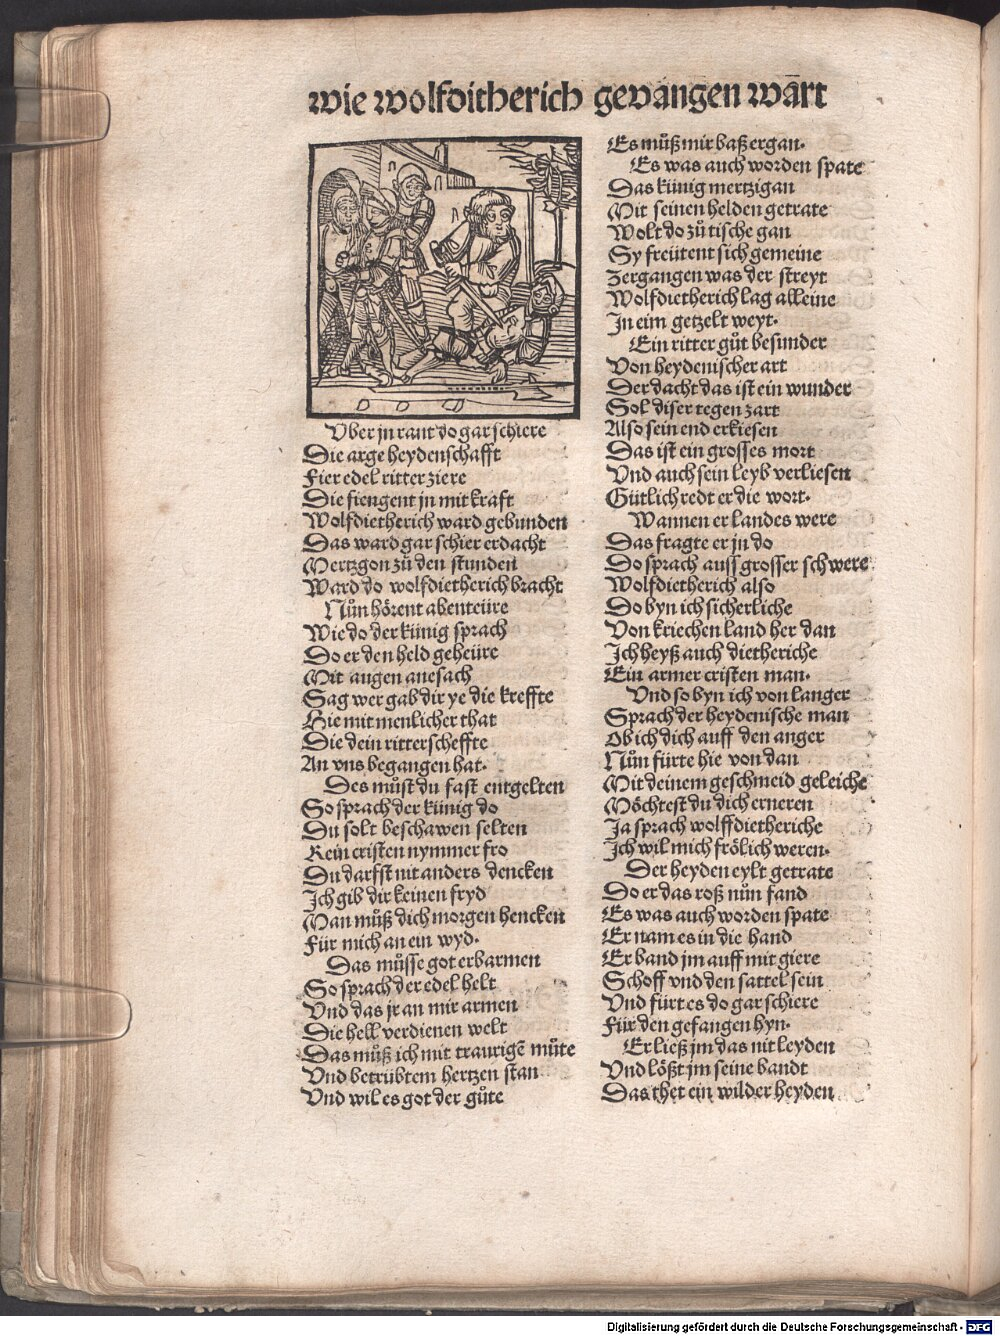 wie wolfditherich gevangen wart
Vber jn rant do gar schiere
Die arge heydenschafft
Fier edel ritter ziere
Die fiengent jn mit kraft
Wolfdietherich ward gebunden
Das ward gar schier erdacht
Mertzgon zů den stunden
Ward do wolfdietherich bracht
Nůn hörent abenteüre
Wie do der künig sprach
Do er den held geheüre
Mit augen anesach
Sag wer gab dir ye die kreffte
Hie mit menlicher that
Die dein ritterscheffte
An vns begangen hat.
Des můst du fast entgelten
So sprach der künig do
Du solt beschawen selten
Kein cristen nymmer fro
Du darfst nit anders dencken
Ich gib dir keinen fryd
Man můß dich morgen hencken
Für mich an ein wyd.
Das můsse got erbarmen
So sprach der edel helt
Vnd das jr an mir armen
Die hell verdienen welt
Das můß ich mit traurigē můte
Vnd betrübtem hertzen stan
Vnd wil es got der gůte
Es můß mir baß ergan.
Es was auch worden spate
Das künig mertzigan
Mit seinen helden getrate
Wolt do zů tische gan
Sy freütent sich gemeine
Zergangen was der streyt
Wolfdietherich lag alleine
In eim getzelt weyt.
Ein ritter gůt besunder
Von heydenischer art
Der dacht das ist ein wunder
Sol diser tegen zart
Also sein end erkiesen
Das ist ein grosses mort
Vnd auch sein leyb verliesen
Gütlich redt er die wort.
Wannen er landes were
Das fragte er jn do
Do sprach auss grosser schwere
Wolfdietherich also
Do byn ich sicherliche
Von kriechen land her dan
Ich heyß auch dietheriche
Ein armer cristen man.
Vnd so byn ich von langer
Sprach der heydenische man
Ob ich dich auff den anger
Nůn fürte hie von dan
Mit deinem geschmeid geleiche
Möchtest du dich erneren
Ja sprach wolffdietheriche
Ich wil mich frölich weren.
Der heyden eylt getrate
Do er das roß nůn fand
Es was auch worden spate
Er nam es in die hand
Er band jm auff mit giere
Schoff vnd den sattel sein
Vnd fürt es do gar schiere
Für den gefangen hyn.
Er ließ jm das nit leyden
Vnd lößt jm seine bandt
Das thet ein wilder heyden
Digitalisierung gefördert durch die Deutsche Forschungsgemeinschaft - DFG